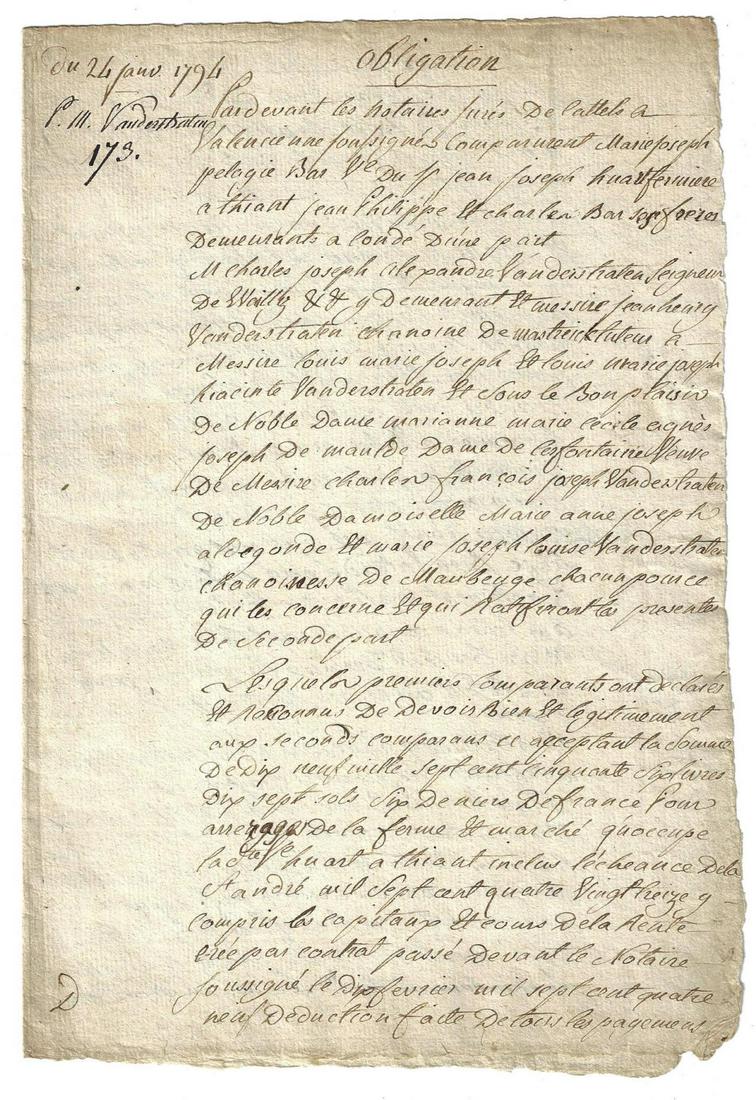 Du 24 janv 1794
Obligation
P. M. Vanderstraten
173.
Pardevant les Notaires jurés De Cattels a
Valencienne soussignés Comparurent Marie joseph
pelagie Bar Ve Du Sr jean joseph huart fermiere
a thiant jean Philippe Et charles Bar ses freres
Demeurants a Condé D'une part
M Charles joseph alexandre Vanderstraten Seigneur
De Wailly && y Demeurant Et messire jean henry
Vanderstraten chanoine De mastreick tuteur a
Messire louis marie joseph Et louis marie joseph
hiacinte Vanderstraten Et Sous le Bon plaisir
De Noble Dame marianne marie cecile agnès
joseph De maulde Dame De lesfontaine Veuve
De Messire charles françois joseph Vanderstraten
De Noble Damoiselle Marie anne joseph
aldegonde Et marie joseph louise Vanderstraten
chanoinesse De Maubeuge chacun pour ce
qui les concerne Et qui Ratifiront les presentes
De Seconde part
Lesquels premiers Comparants ont déclarés
Et Reconnus De Devoir Bien Et legitimement
aux seconds comparans ce acceptant la Somme
De Dix neuf mille sept cent cinquante Six livres
Dix sept sols Six Deniers De france Pour
arrerages De la ferme Et marché qu'occupe
la dte Ve huart a thiant inclus l'écheance De la
St andré mil Sept cent quatre Vingt treize y
compris les capitaux Et cours De la Rente
créé par contrat passé Devant le Notaire
soussigné le Dix fevrier mil sept cent quatre
neuf Deduction faite De tous les payemens
D